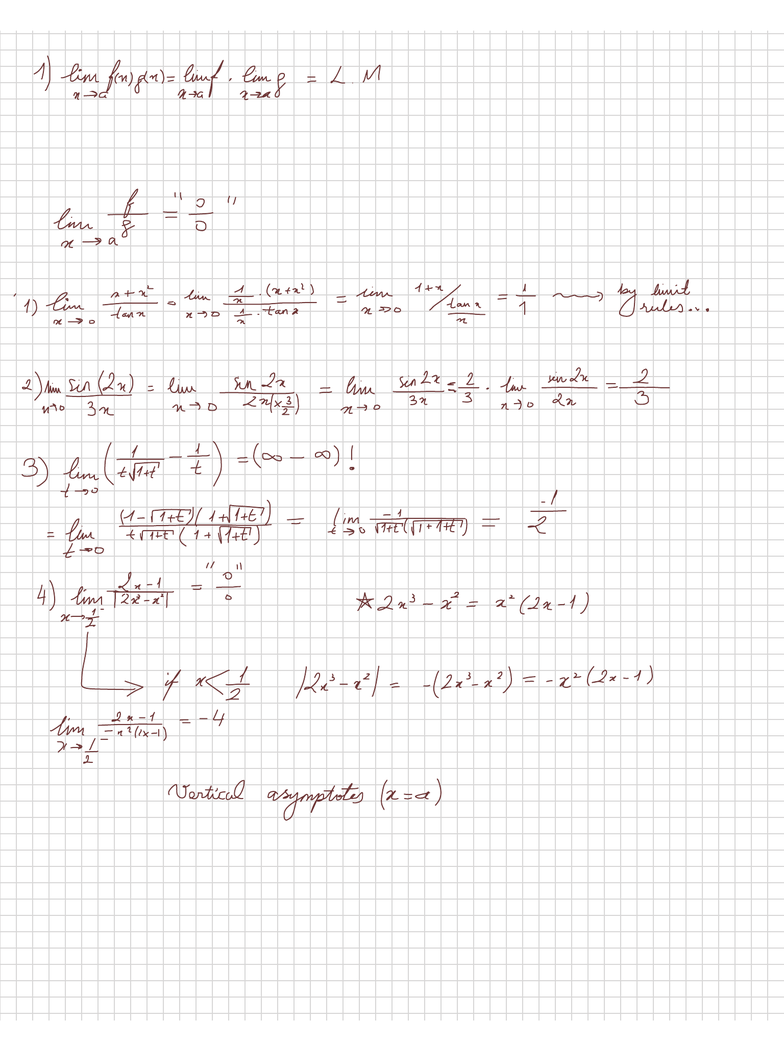 1) lim_{x→a} f(x) g(x) = lim_{x→a} f · lim_{x→a} g = L . M
lim_{x→a} f/g = "0/0"
1) lim_{x→0} (x+x²)/(tan x) = lim_{x→0} (1/x · (x+x²))/(1/x · tan x) = lim_{x→0} (1+x)/(tan x / x) = 1/1 ⇝ by limit rules...
2) lim_{x→0} sin(2x)/3x = lim_{x→0} sin 2x/(2x(×3/2)) = lim_{x→0} sin 2x/3x = 2/3 · lim_{x→0} sin 2x/2x = 2/3
3) lim_{t→0} (1/(t√(1+t)) − 1/t) = (∞ − ∞) !
= lim_{t→0} ((1−√(1+t))(1+√(1+t)))/(t√(1+t)(1+√(1+t))) = lim_{t→0} −1/(√(1+t)(√(1+1+t))) = −1/2
4) lim_{x→1/2⁻} (2x−1)/|2x³−x²| = "0/0" ☆ 2x³ − x² = x²(2x−1)
→ if x < 1/2 |2x³−x²| = −(2x³−x²) = −x²(2x−1)
lim_{x→1/2⁻} (2x−1)/(−x²(2x−1)) = −4
Vertical asymptotes (x=a)